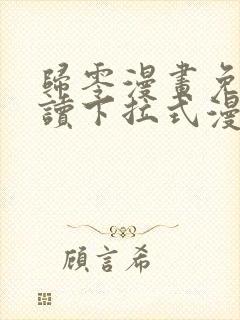 歸零漫畫免
讀下拉式漫
顧言希